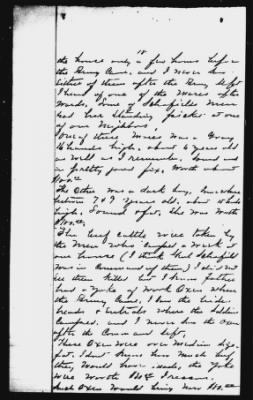 18
the house only a few hours before
the Army came, and I never saw
either of them after the Army left
I heard of one of the Mares after
wards. Some of Schofields Men
had her standing picket at one
of our Neighbors.
One of these Mares was a Gray
16 hands high, about 6 years old
as well as I remember. Sound and
in pretty good fix, worth about
The Other was a dark bay, Somewhere
between 7 & 9 Years old, about 16 hands
high, Sound & fat. She was worth
The beef cattle were taken by
the Men who Camped a week at
our house (I think Genl Schofield
was in Command of them) I did not
see them killed but I know father
had a Yoke of Work Oxen when
the Army Came, I saw the hides
heads & entrails where the Soldiers
Camped, and I never saw the Oxen
after the Command left.
These Oxen were over Medium size
fat. I dont know how Much beef
they would have made, the Yoke
was worth I reckon.
Such Oxen would bring now